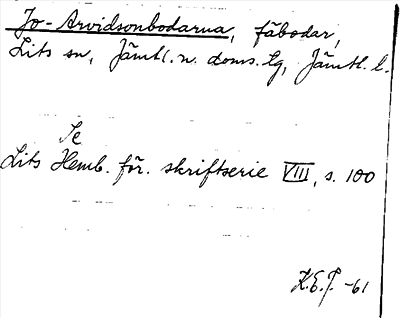 Jo-Arvidsonbodarna, fäbodar,
Lits sn, Jämtl. n. doms. lg, Jämtl. l.
Se
Lits Hemb. för. skriftserie VIII, s. 100
K.E.J. -61